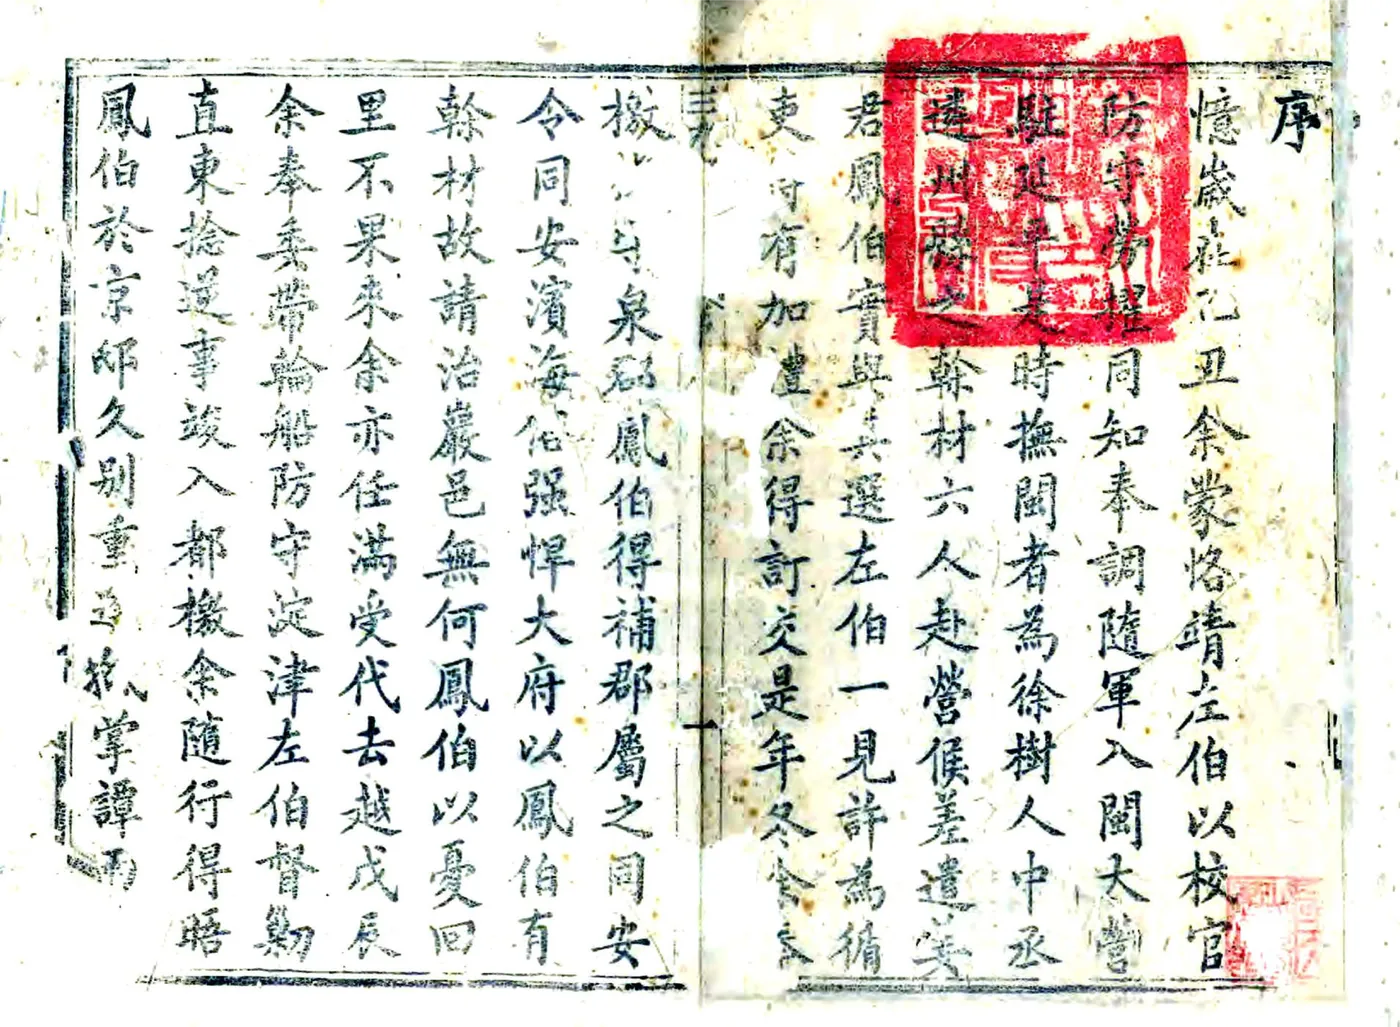 序
憶歲在乙丑余蒙恪靖左伯以校官
防守勞擢同知奉調隨軍入閩大營
駐延平是時撫閩者為徐樹人中丞
遴州縣之幹材六人赴營候差遣姜
君鳳伯實與其選左伯一見許為循
吏有加禮余得訂交是年冬余奉
檄守泉郡鳳伯得補郡屬之同安
令同安濱海俗强悍大府以鳳伯有
幹材故請治巖邑無何鳳伯以憂回
里不果來余亦任滿受代去越戊辰
余奉委帶輪船防守淀津左伯督勦
直東捻逆事竣入都檄余隨行得晤
鳳伯於京邸久別重逢抵掌譚兩